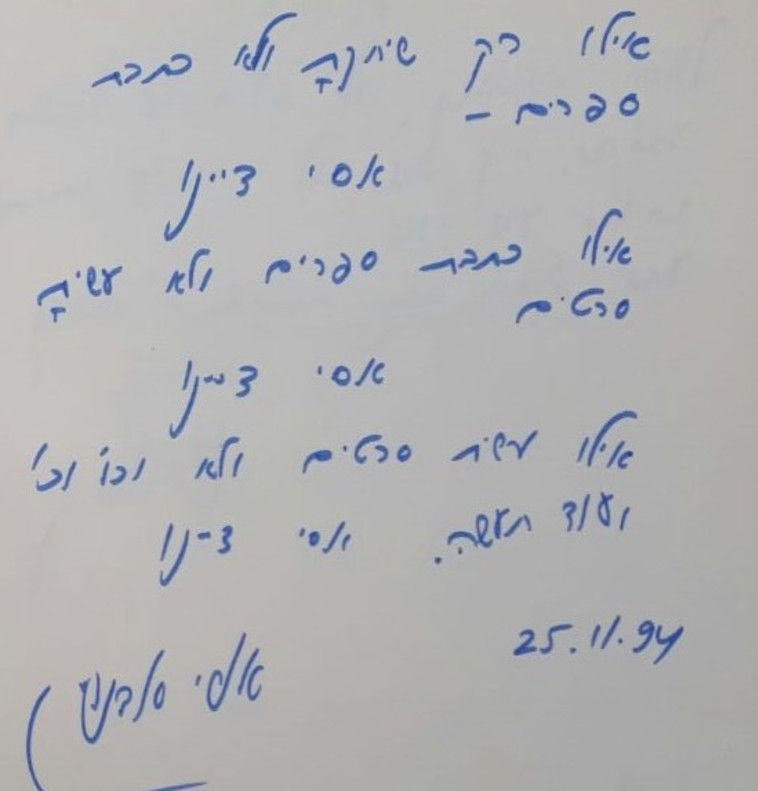 אילו רק שיחקתָ ולא כתבת
ספרים –
אסי דיינו
אילו כתבת ספרים ולא עשיתָ
סרטים
אסי דיינו
אילו עשית סרטים ולא וכו' וכו'
ועוד תעשה. אסי דיינו
25.11.94